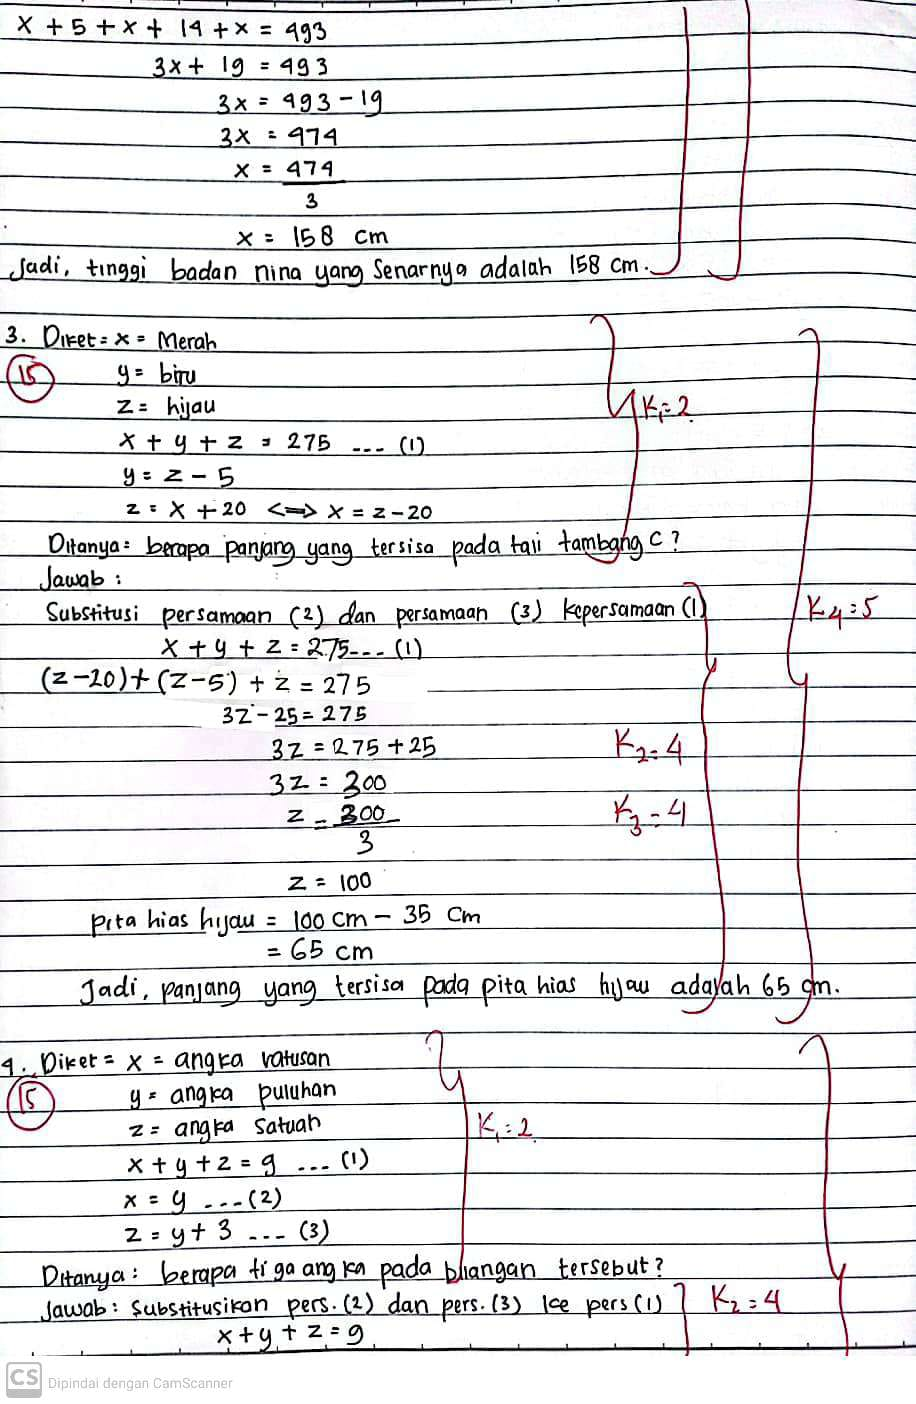 x + 5 + x + 14 + x = 493
3x + 19 = 493
3x = 493 - 19
3x = 474
x = 474
3
x = 158 cm
Jadi, tinggi badan nina yang Senarnya adalah 158 cm.
3. Diket = x = Merah
15
y = biru
z = hijau
K1 = 2
x + y + z = 275 --- (1)
y = z - 5
z = x + 20 <=> x = z - 20
Ditanya = berapa panjang yang tersisa pada tali tambang C?
Jawab :
Substitusi persamaan (2) dan persamaan (3) kepersamaan (1)
K4 = 5
x + y + z = 275 --- (1)
(z-20) + (z-5) + z = 275
3z - 25 = 275
3z = 275 + 25
K2 = 4
3z = 300
z = 300
K3 = 4
3
z = 100
Pita hias hijau = 100 cm - 35 cm
= 65 cm
Jadi, panjang yang tersisa pada pita hias hijau adalah 65 cm.
4. Diket = x = angka ratusan
15
y = angka puluhan
z = angka satuah
K1 = 2
x + y + z = 9 --- (1)
x = y --- (2)
z = y + 3 --- (3)
Ditanya : berapa tiga angka pada bliangan tersebut?
Jawab : Substitusikan pers. (2) dan pers. (3) ke pers (1)
K2 = 4
x + y + z = 9
CS Dipindai dengan CamScanner